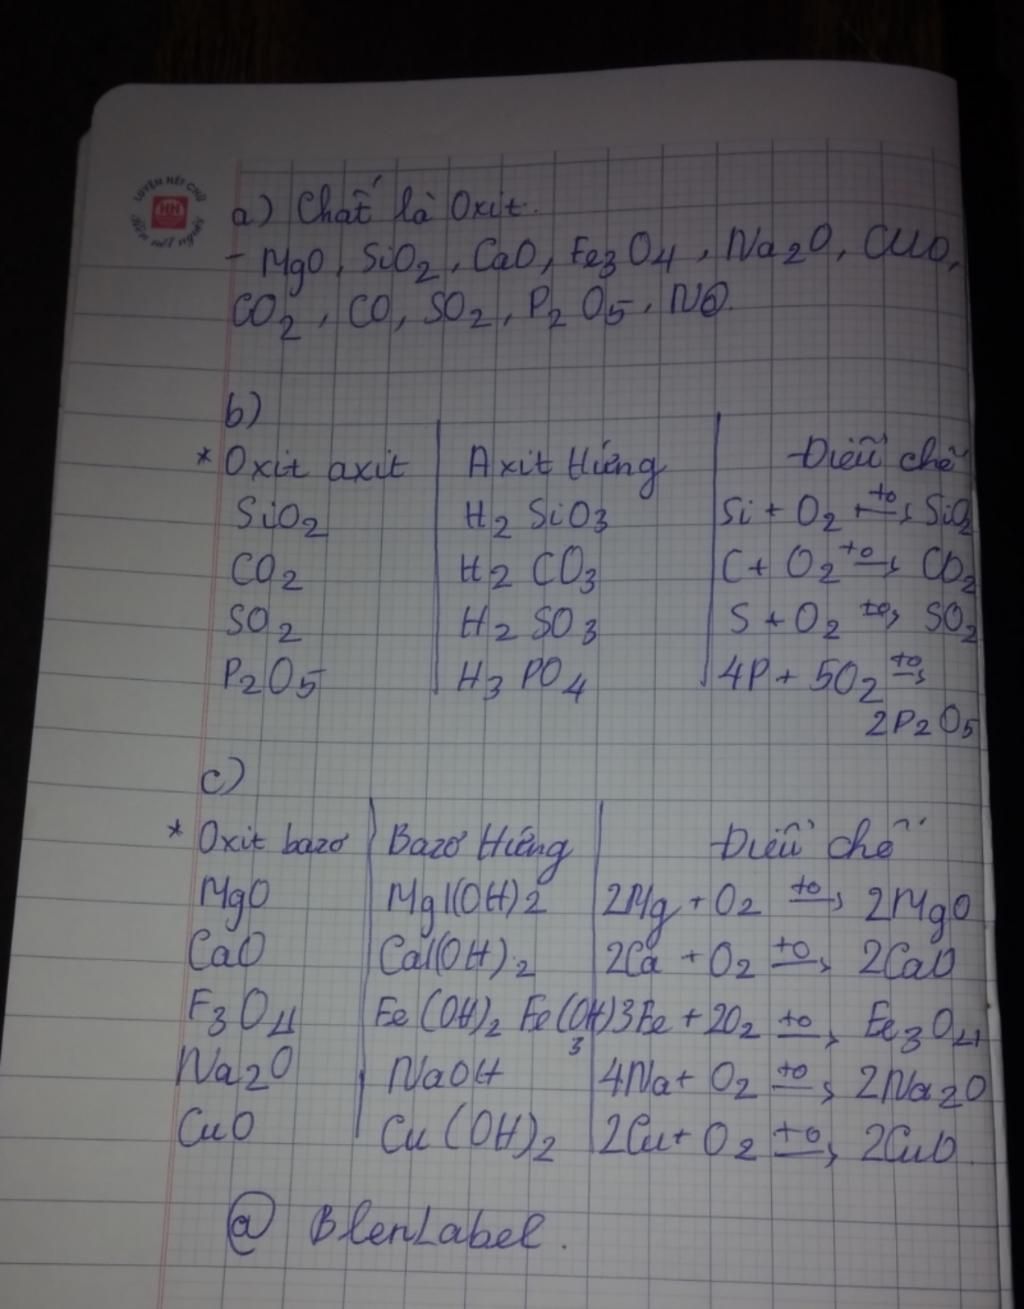 LUYỆN NÉT CHỮ
HH
Rèn nết người
a) Chất là Oxit.
- MgO, SiO2, CaO, Fe3O4, Na2O, CuO,
CO2, CO, SO2, P2O5, NO.
b)
* Oxit axit | Axit tứng | Điều chế
SiO2 | H2SiO3 | Si + O2 to→ SiO2
CO2 | H2CO3 | C + O2 to→ CO2
SO2 | H2SO3 | S + O2 to→ SO2
P2O5 | H3PO4 | 4P + 5O2 to→
2P2O5
c)
* Oxit bazơ | Bazơ tứng | Điều chế
MgO | Mg(OH)2 | 2Mg + O2 to→ 2MgO
CaO | Ca(OH)2 | 2Ca + O2 to→ 2CaO
F3O4 | Fe(OH)2 Fe(OH)3 | 3Fe + 2O2 to→ Fe3O4
Na2O | NaOH | 4Na + O2 to→ 2Na2O
CuO | Cu(OH)2 | 2Cu + O2 to→ 2CuO
@ BlenLabel.